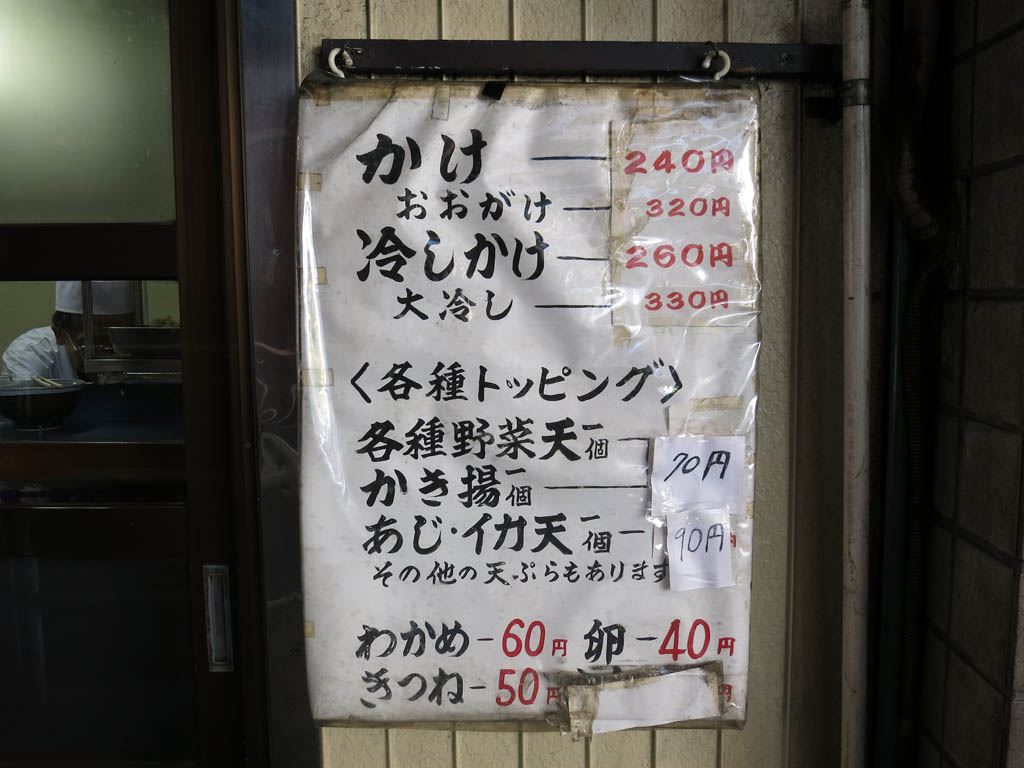 かけ 240円
おおがけ 320円
冷しかけ 260円
大冷し 330円
〈各種トッピング〉
各種野菜天一個 70円
かき揚一個
あじ・イカ天一個 90円
その他の天ぷらもあります
わかめ-60円 卵-40円
きつね-50円 円